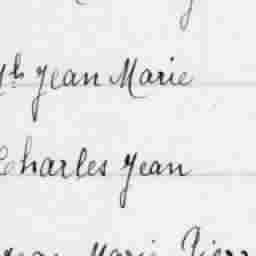 Jean Marie
Charles Jean
Marie Pierr